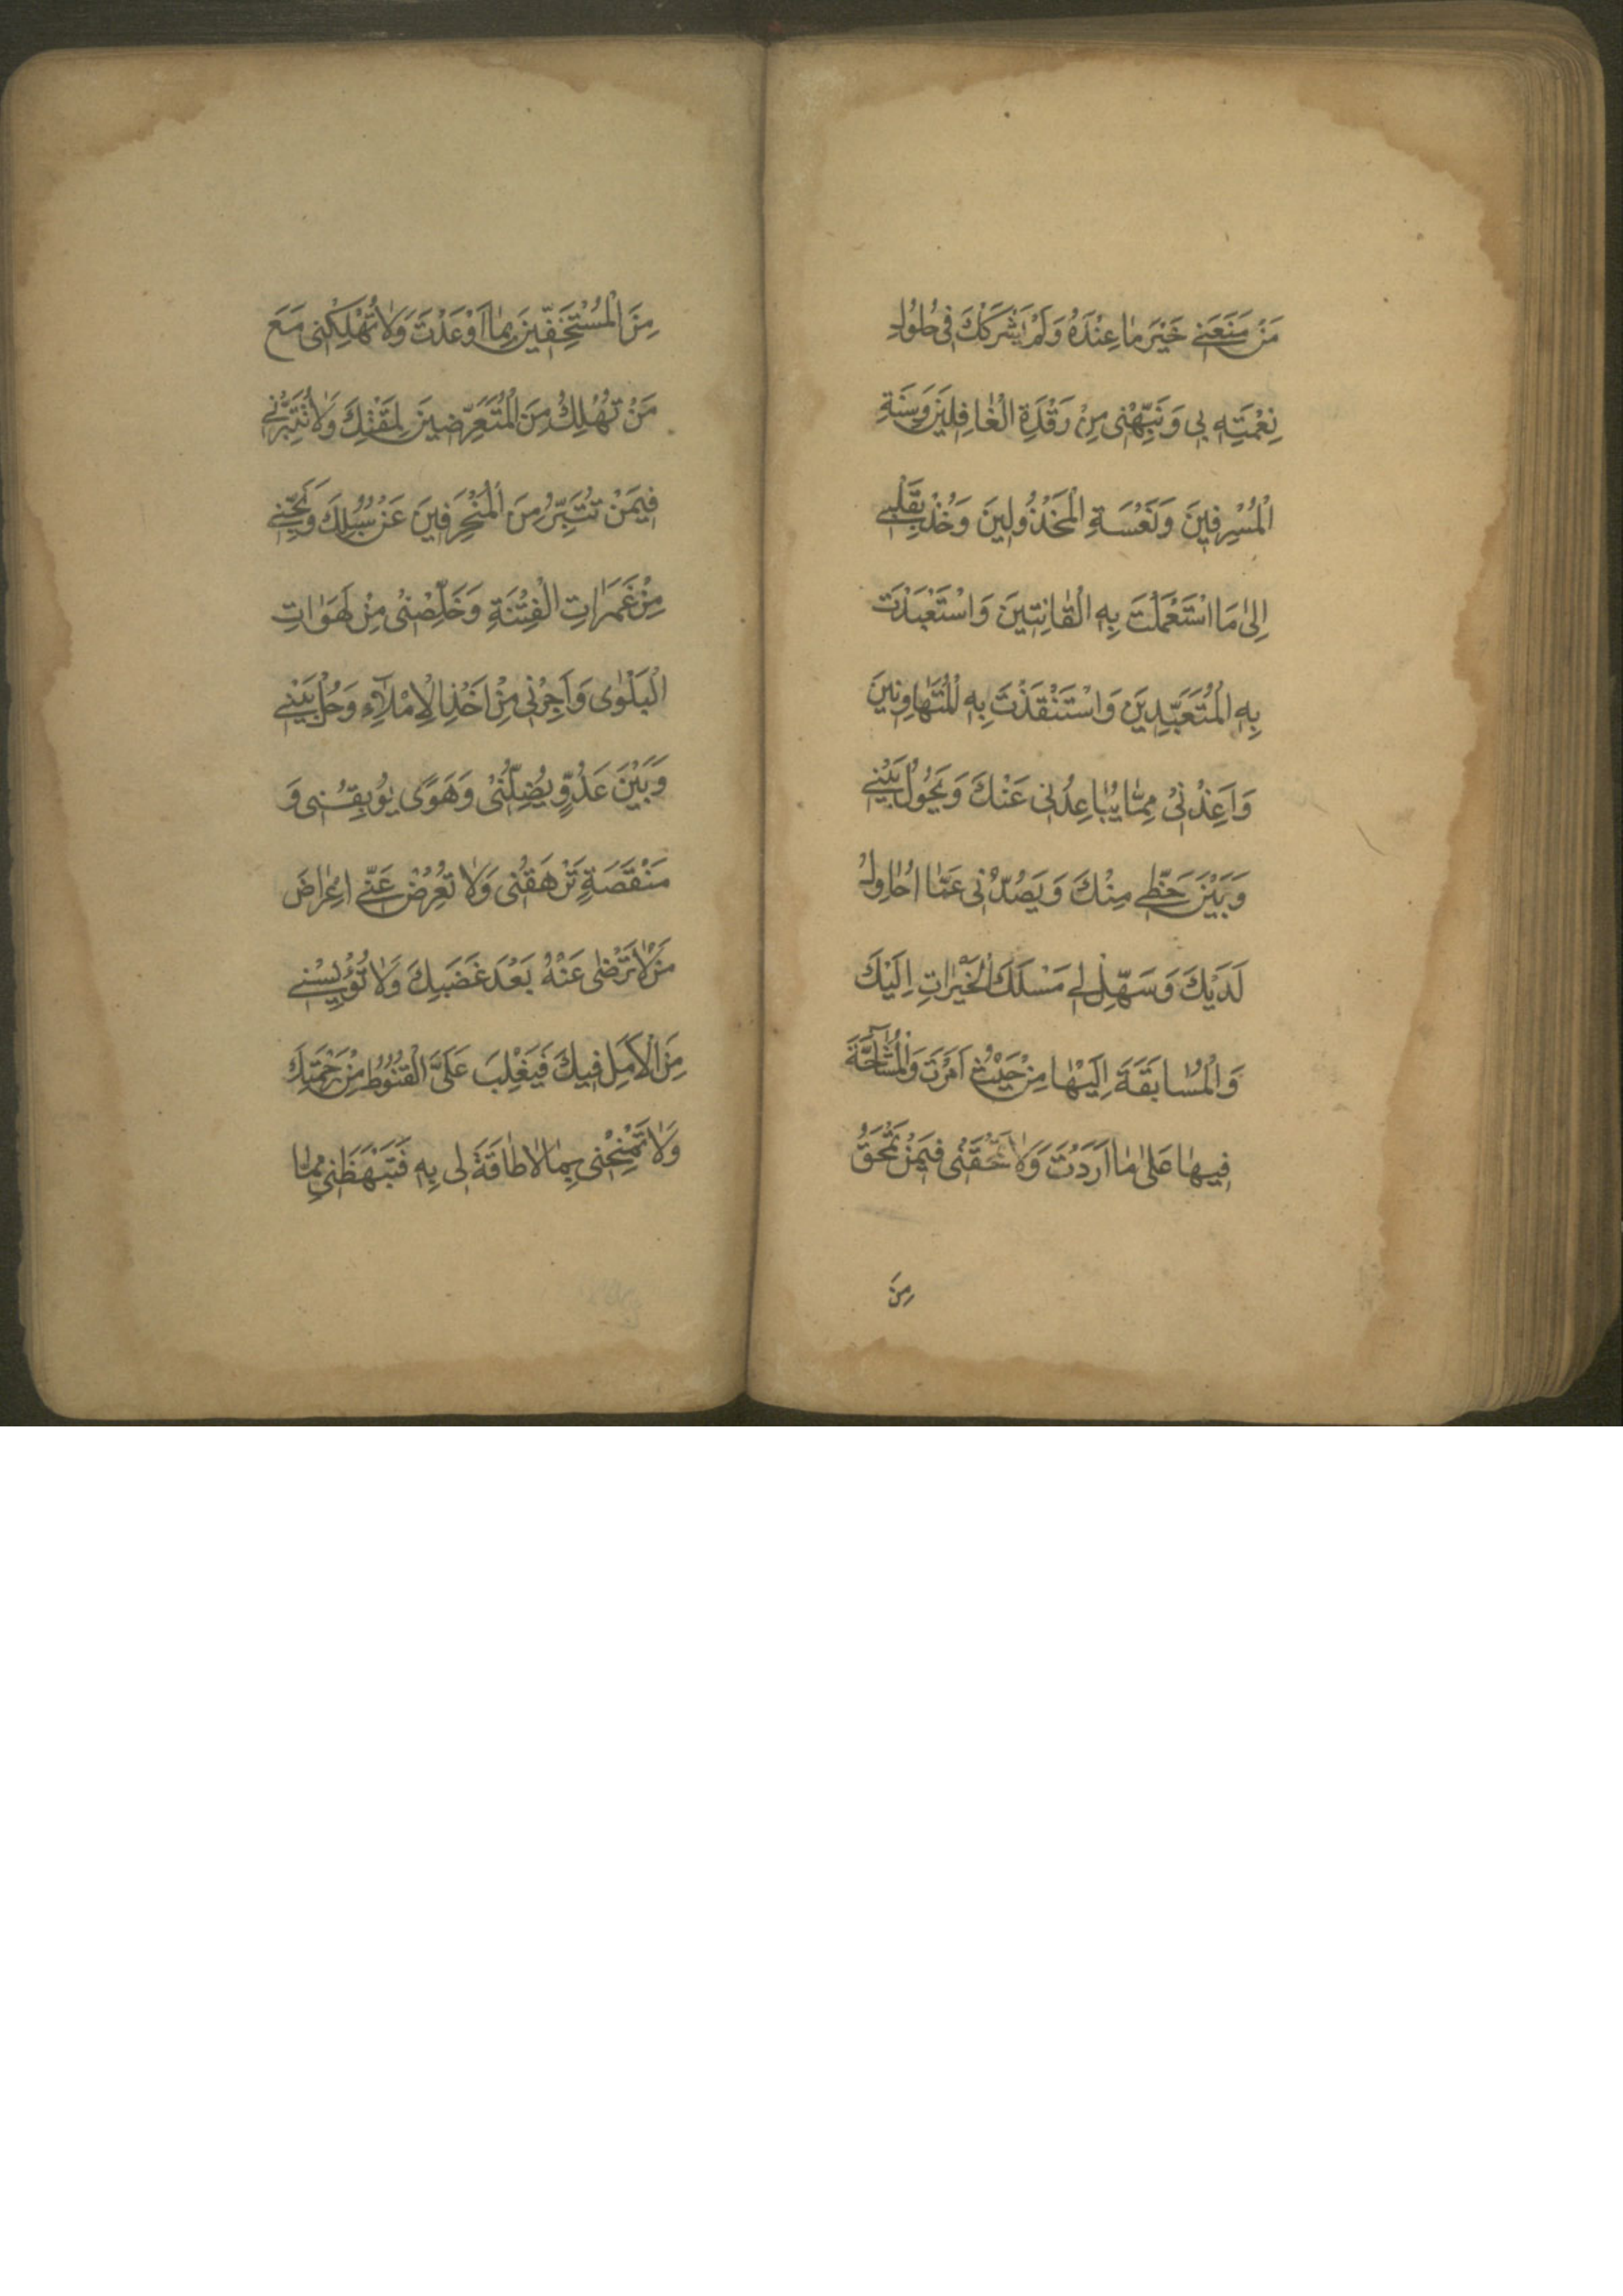 مَنْ مَنَعَنِي خَيْرَ مَا عِنْدَهُ وَلَمْ يَشْرَكْكَ فِي حُلُولِ
نِعْمَتِهِ بِي وَنَبِّهْنِي مِنْ رَقْدَةِ الْغَافِلِينَ وَسِنَةِ
الْمُسْرِفِينَ وَنَعْسَةِ الْمَخْذُولِينَ وَخُذْ بِقَلْبِي
اِلىٰ مَا اسْتَعْمَلْتَ بِهِ الْقَانِتِينَ وَاسْتَعْبَدْتَ
بِهِ الْمُتَعَبِّدِينَ وَاسْتَنْقَذْتَ بِهِ الْمُتَهَاوِنِينَ
وَاَعِذْنِي مِمَّا يُبَاعِدُنِي عَنْكَ وَيَحُولُ بَيْنِي
وَبَيْنَ حَظِّي مِنْكَ وَيَصُدُّنِي عَمَّا اُحَاوِلُ
لَدَيْكَ وَسَهِّلْ لِي مَسْلَكَ الْخَيْرَاتِ اِلَيْكَ
وَالْمُسَابَقَةَ اِلَيْهَا مِنْ حَيْثُ اَمَرْتَ وَالْمُشَآحَّةَ
فِيهَا عَلىٰ مَا اَرَدْتَ وَلَا تَمْحَقْنِي فِيمَنْ تَمْحَقُ
مِنَ
مِنَ الْمُسْتَخِفِّينَ بِمَا اَوْعَدْتَ وَلَا تُهْلِكْنِي مَعَ
مَنْ تُهْلِكُ مِنَ الْمُتَعَرِّضِينَ لِمَقْتِكَ وَلَا تُتَبِّرْنِي
فِيمَنْ تُتَبِّرُ مِنَ الْمُنْحَرِفِينَ عَنْ سُبُلِكَ وَنَجِّنِي
مِنْ غَمَرَاتِ الْفِتْنَةِ وَخَلِّصْنِي مِنْ لَهَوَاتِ
الْبَلْوٰى وَاَجِرْنِي مِنْ اَخْذِ الْاِمْلَآءِ وَحُلْ بَيْنِي
وَبَيْنَ عَدُوٍّ يُضِلُّنِي وَهَوًى يُوبِقُنِي وَ
مَنْقَصَةٍ تَرْهَقُنِي وَلَا تُعْرِضْ عَنِّي اِعْرَاضَ
مَنْ لَا تَرْضٰى عَنْهُ بَعْدَ غَضَبِكَ وَلَا تُؤْيِسْنِي
مِنَ الْاَمَلِ فِيكَ فَيَغْلِبَ عَلَيَّ الْقُنُوطُ مِنْ رَحْمَتِكَ
وَلَا تَمْنِحْنِي بِمَا لَا طَاقَةَ لِي بِهِ فَتَبْهَظَنِي مِمَّا